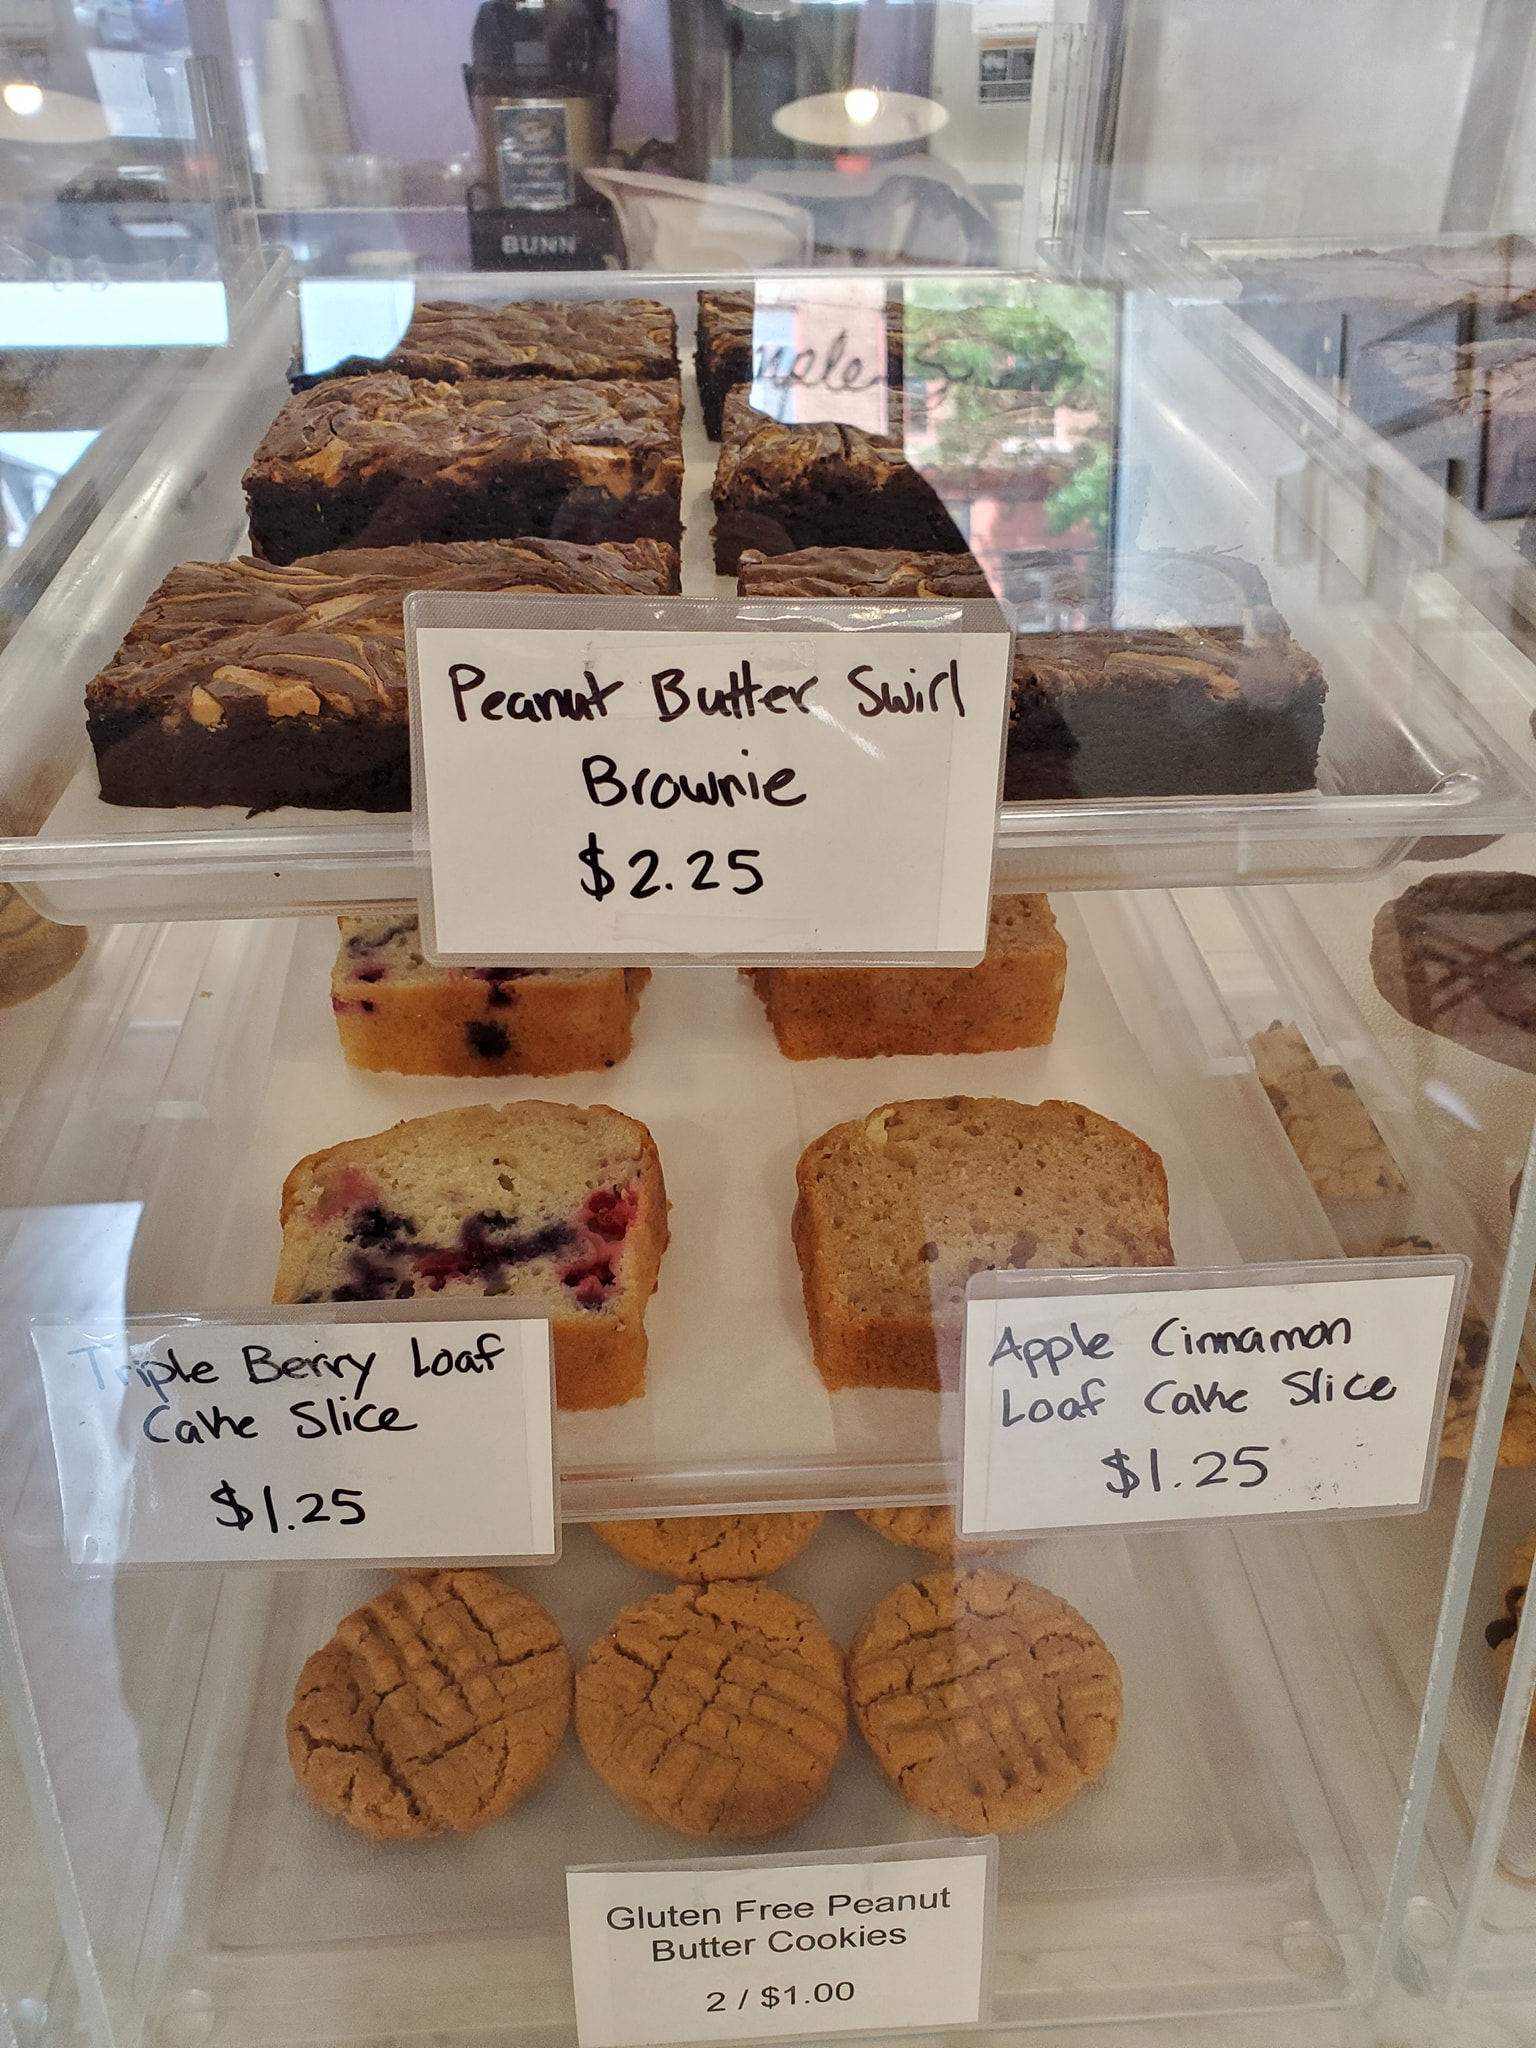 BUNN
Peanut Butter Swirl
Brownie
$2.25
Triple Berry Loaf
Cake Slice
$1.25
Apple Cinnamon
Loaf Cake Slice
$1.25
Gluten Free Peanut
Butter Cookies
2 / $1.00